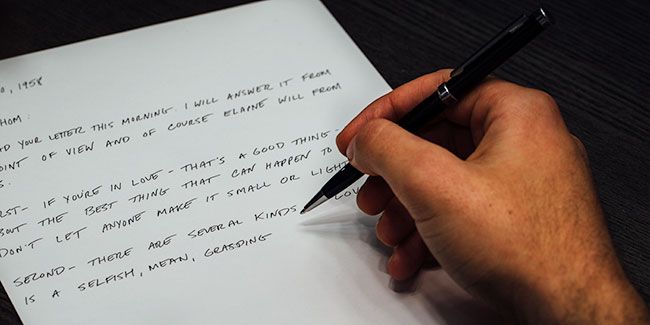 0, 1958
HOM:
AD YOUR LETTER THIS MORNING. I WILL ANSWER IT FROM
OINT OF VIEW AND OF COURSE ELAINE WILL FROM
S.
RST - IF YOU'RE IN LOVE - THAT'S A GOOD THING -
BOUT THE BEST THING THAT CAN HAPPEN TO
DON'T LET ANYONE MAKE IT SMALL OR LIGHT
SECOND - THERE ARE SEVERAL KINDS LOV
IS A SELFISH, MEAN, GRASPING